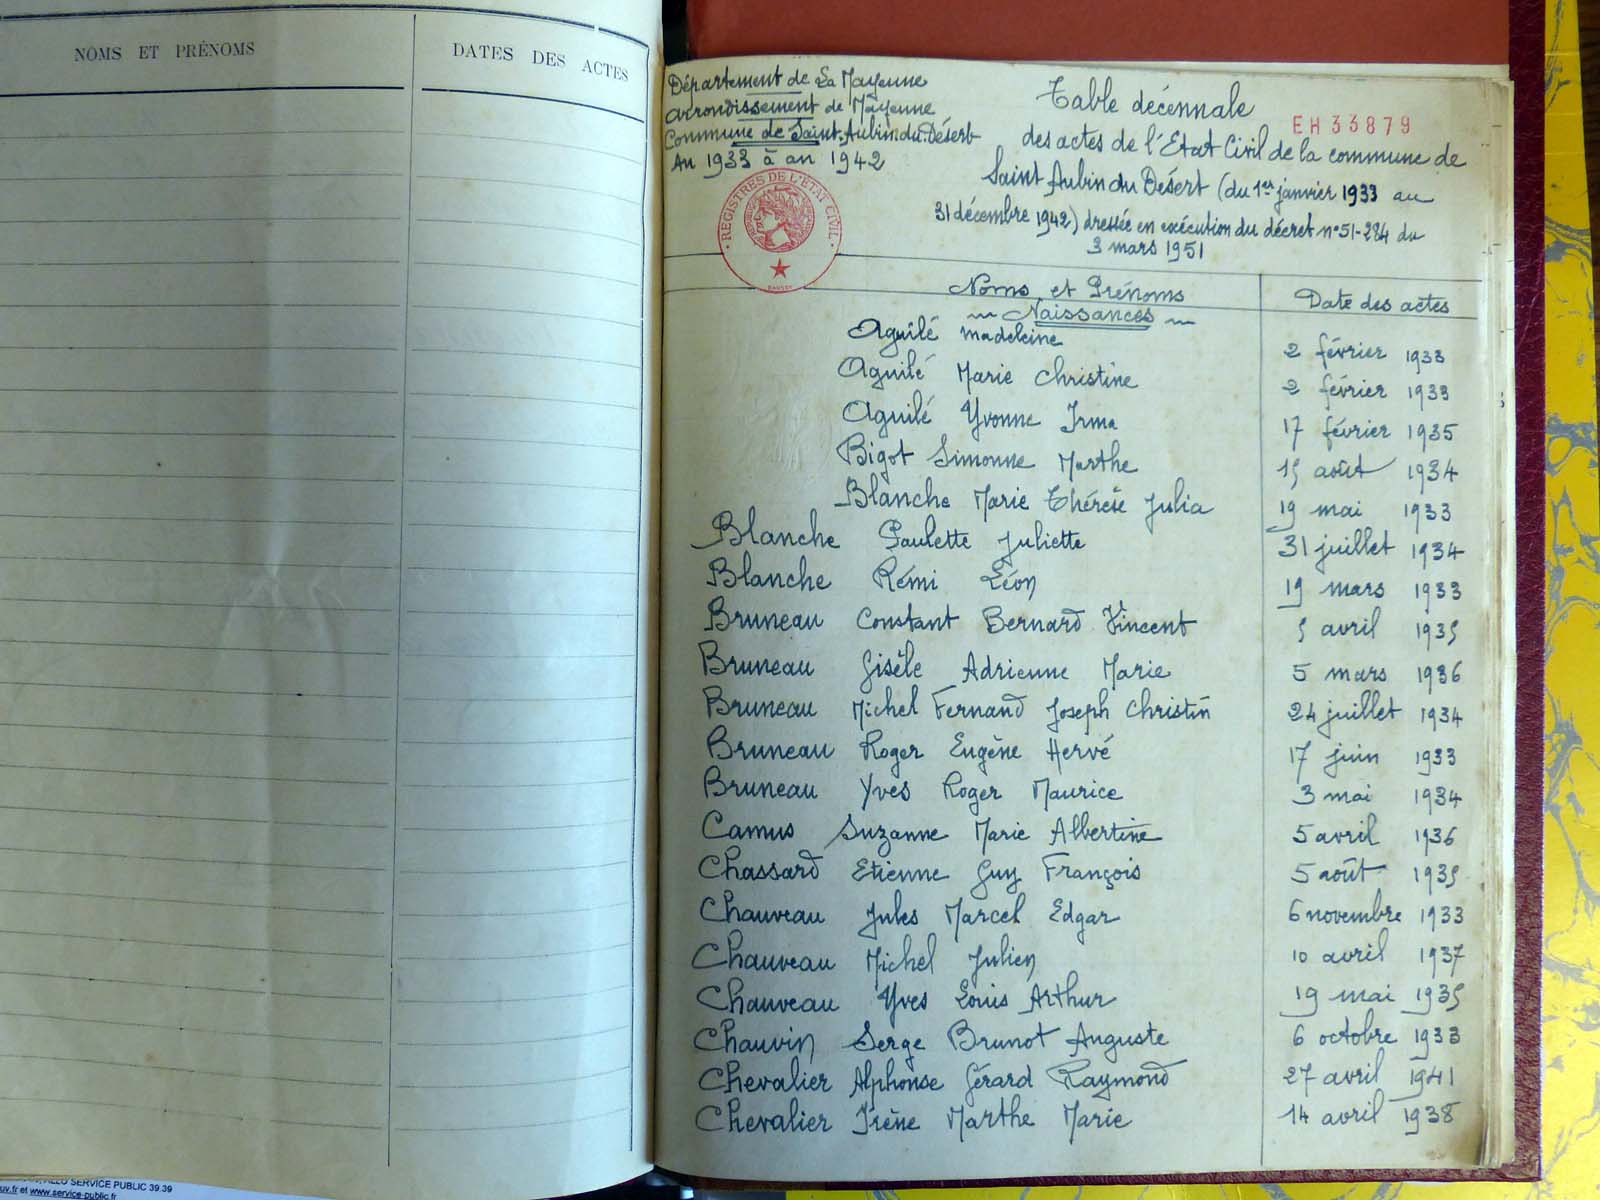 NOMS ET PRÉNOMS
DATES DES ACTES
Département de La Mayenne
arrondissement de Mayenne
Commune de Saint.Aubin.du.Désert
An 1933 à an 1942
Table décennale
EH33879
des actes de l'Etat Civil de la commune de
Saint Aubin du Désert (du 1er janvier 1933 au
31 décembre 1942) dressée en exécution du décret n°51-284 du
3 mars 1951
REGISTRES DE L'ÉTAT CIVIL
Noms et Prénoms
Date des actes
Naissances
Aguilé madeleine 2 février 1933
Aguilé Marie Christine 2 février 1933
Aguilé Yvonne Irma 17 février 1935
Bigot Simonne Marthe 15 août 1934
Blanche Marie Thérèse Julia 19 mai 1933
Blanche Paulette Juliette 31 juillet 1934
Blanche Rémi Léon 19 mars 1933
Bruneau Constant Bernard Vincent 5 avril 1935
Bruneau Gisèle Adrienne Marie 5 mars 1936
Bruneau Michel Fernand Joseph Christin 24 juillet 1934
Bruneau Roger Eugène Hervé 17 juin 1933
Bruneau Yves Roger Maurice 3 mai 1934
Camus Suzanne Marie Albertine 5 avril 1936
Chassard Etienne Guy François 5 août 1935
Chauveau Jules Marcel Edgar 6 novembre 1933
Chauveau Michel Julien 10 avril 1937
Chauveau Yves Louis Arthur 19 mai 1935
Chauvin Serge Brunot Auguste 6 octobre 1933
Chevalier Alphonse Gérard Raymond 27 avril 1941
Chevalier Irène Marthe Marie 14 avril 1938
SERVICE PUBLIC 39.39
uv.fr et www.service-public.fr